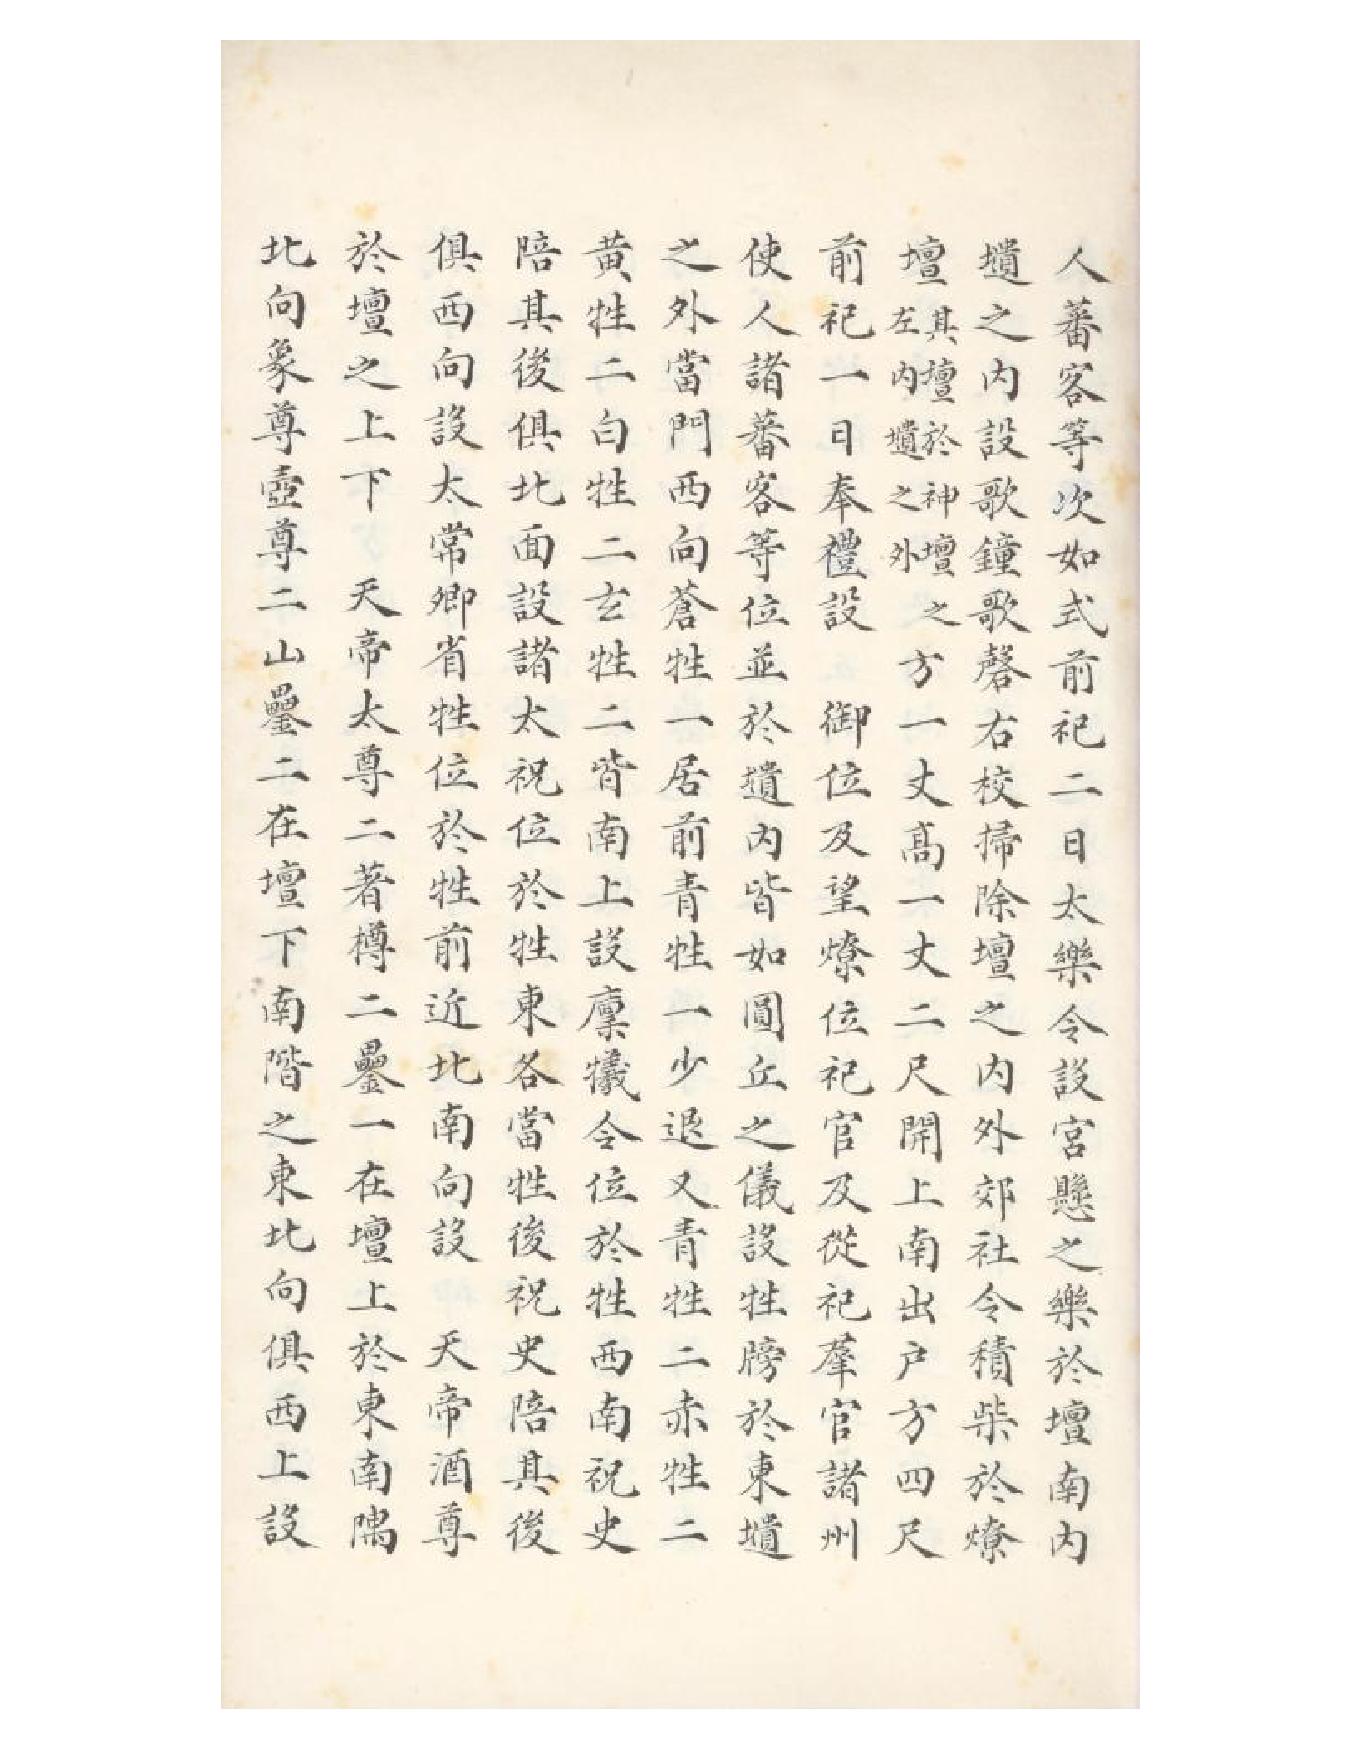 人蕃客等次如式前祀二日太樂令設宮懸之樂於壇南内
壝之内設歌鐘歌磬右校掃除壇之内外郊社令積柴於燎
壇其壇於神壇之左内壝之外方一丈髙一丈二尺開上南出户方四尺
前祀一日奉禮設 御位及望燎位祀官及從祀羣官諸州
使人諸蕃客等位並於壝内皆如圓丘之儀設牲牓於東壝
之外當門西向蒼牲一居前青牲一少退又青牲二赤牲二
黄牲二白牲二玄牲二皆南上設廪犧令位於牲西南祝史
陪其後俱北面設諸太祝位於牲東各當牲後祝史陪其後
俱西向設太常卿省牲位於牲前近北南向設 天帝酒尊
於壇之上下 天帝太尊二著樽二罍一在壇上於東南隅
北向象尊壺尊二山罍二在壇下南階之東北向俱西上設